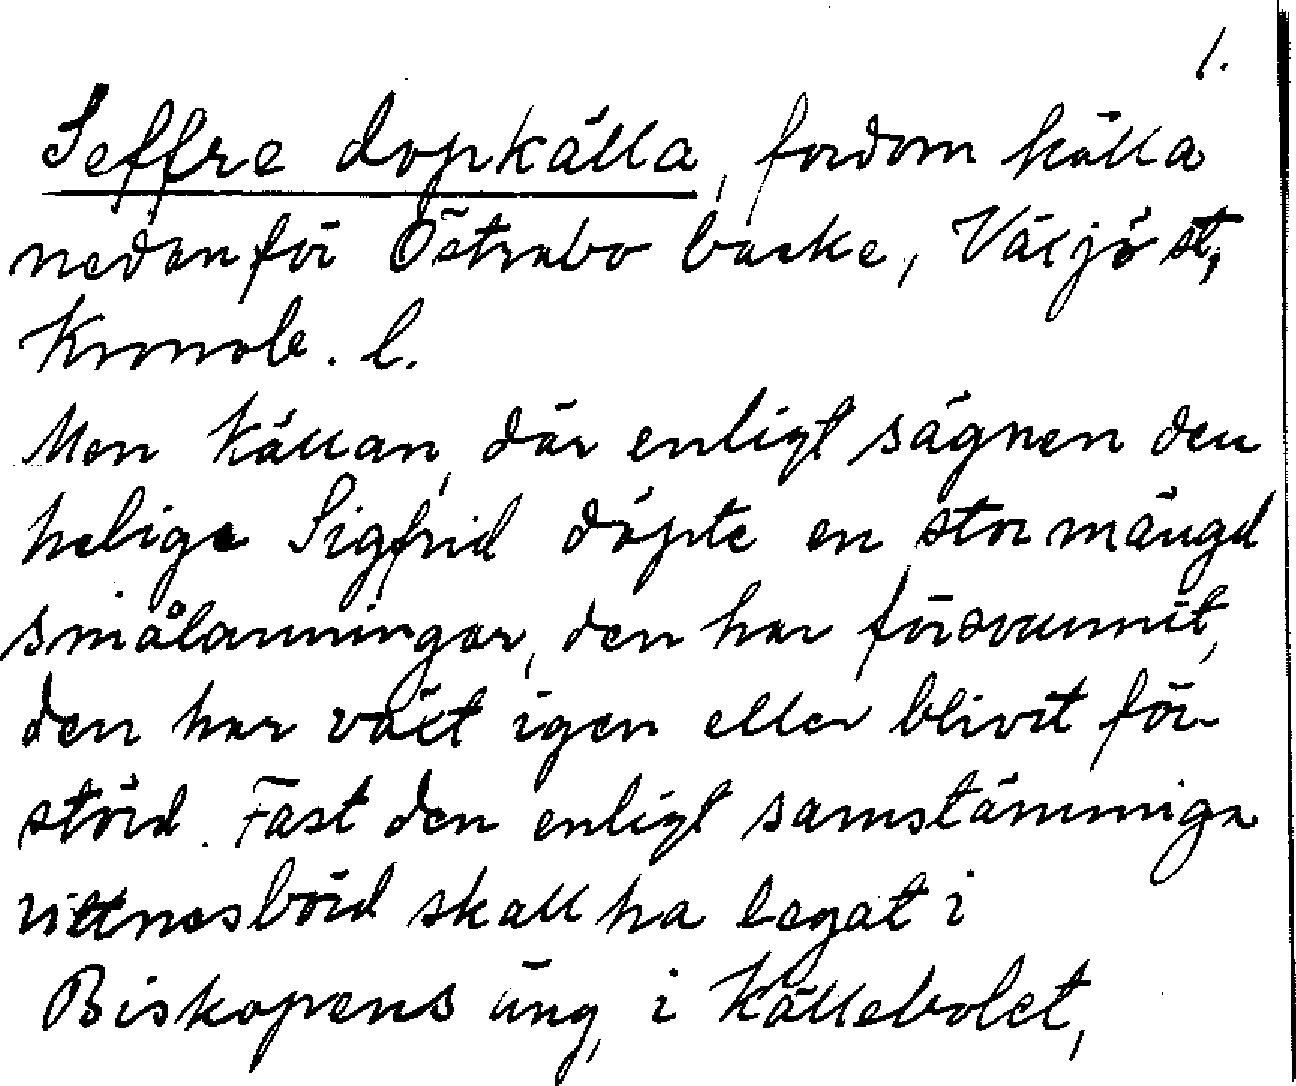 1.
Seffre dopkälla, fordom källa
nedanför Östrabo backe, Växjö st,
Kronob. l.
Men källan, där enligt sägnen den
helige Sigfrid döpte en stor mängd
smålänningar, den har försvunnit,
den har växt igen eller blivit för-
störd. Fast den enligt samstämmiga
vittnesbörd skall ha legat i
Biskopens äng, i Källebolet,